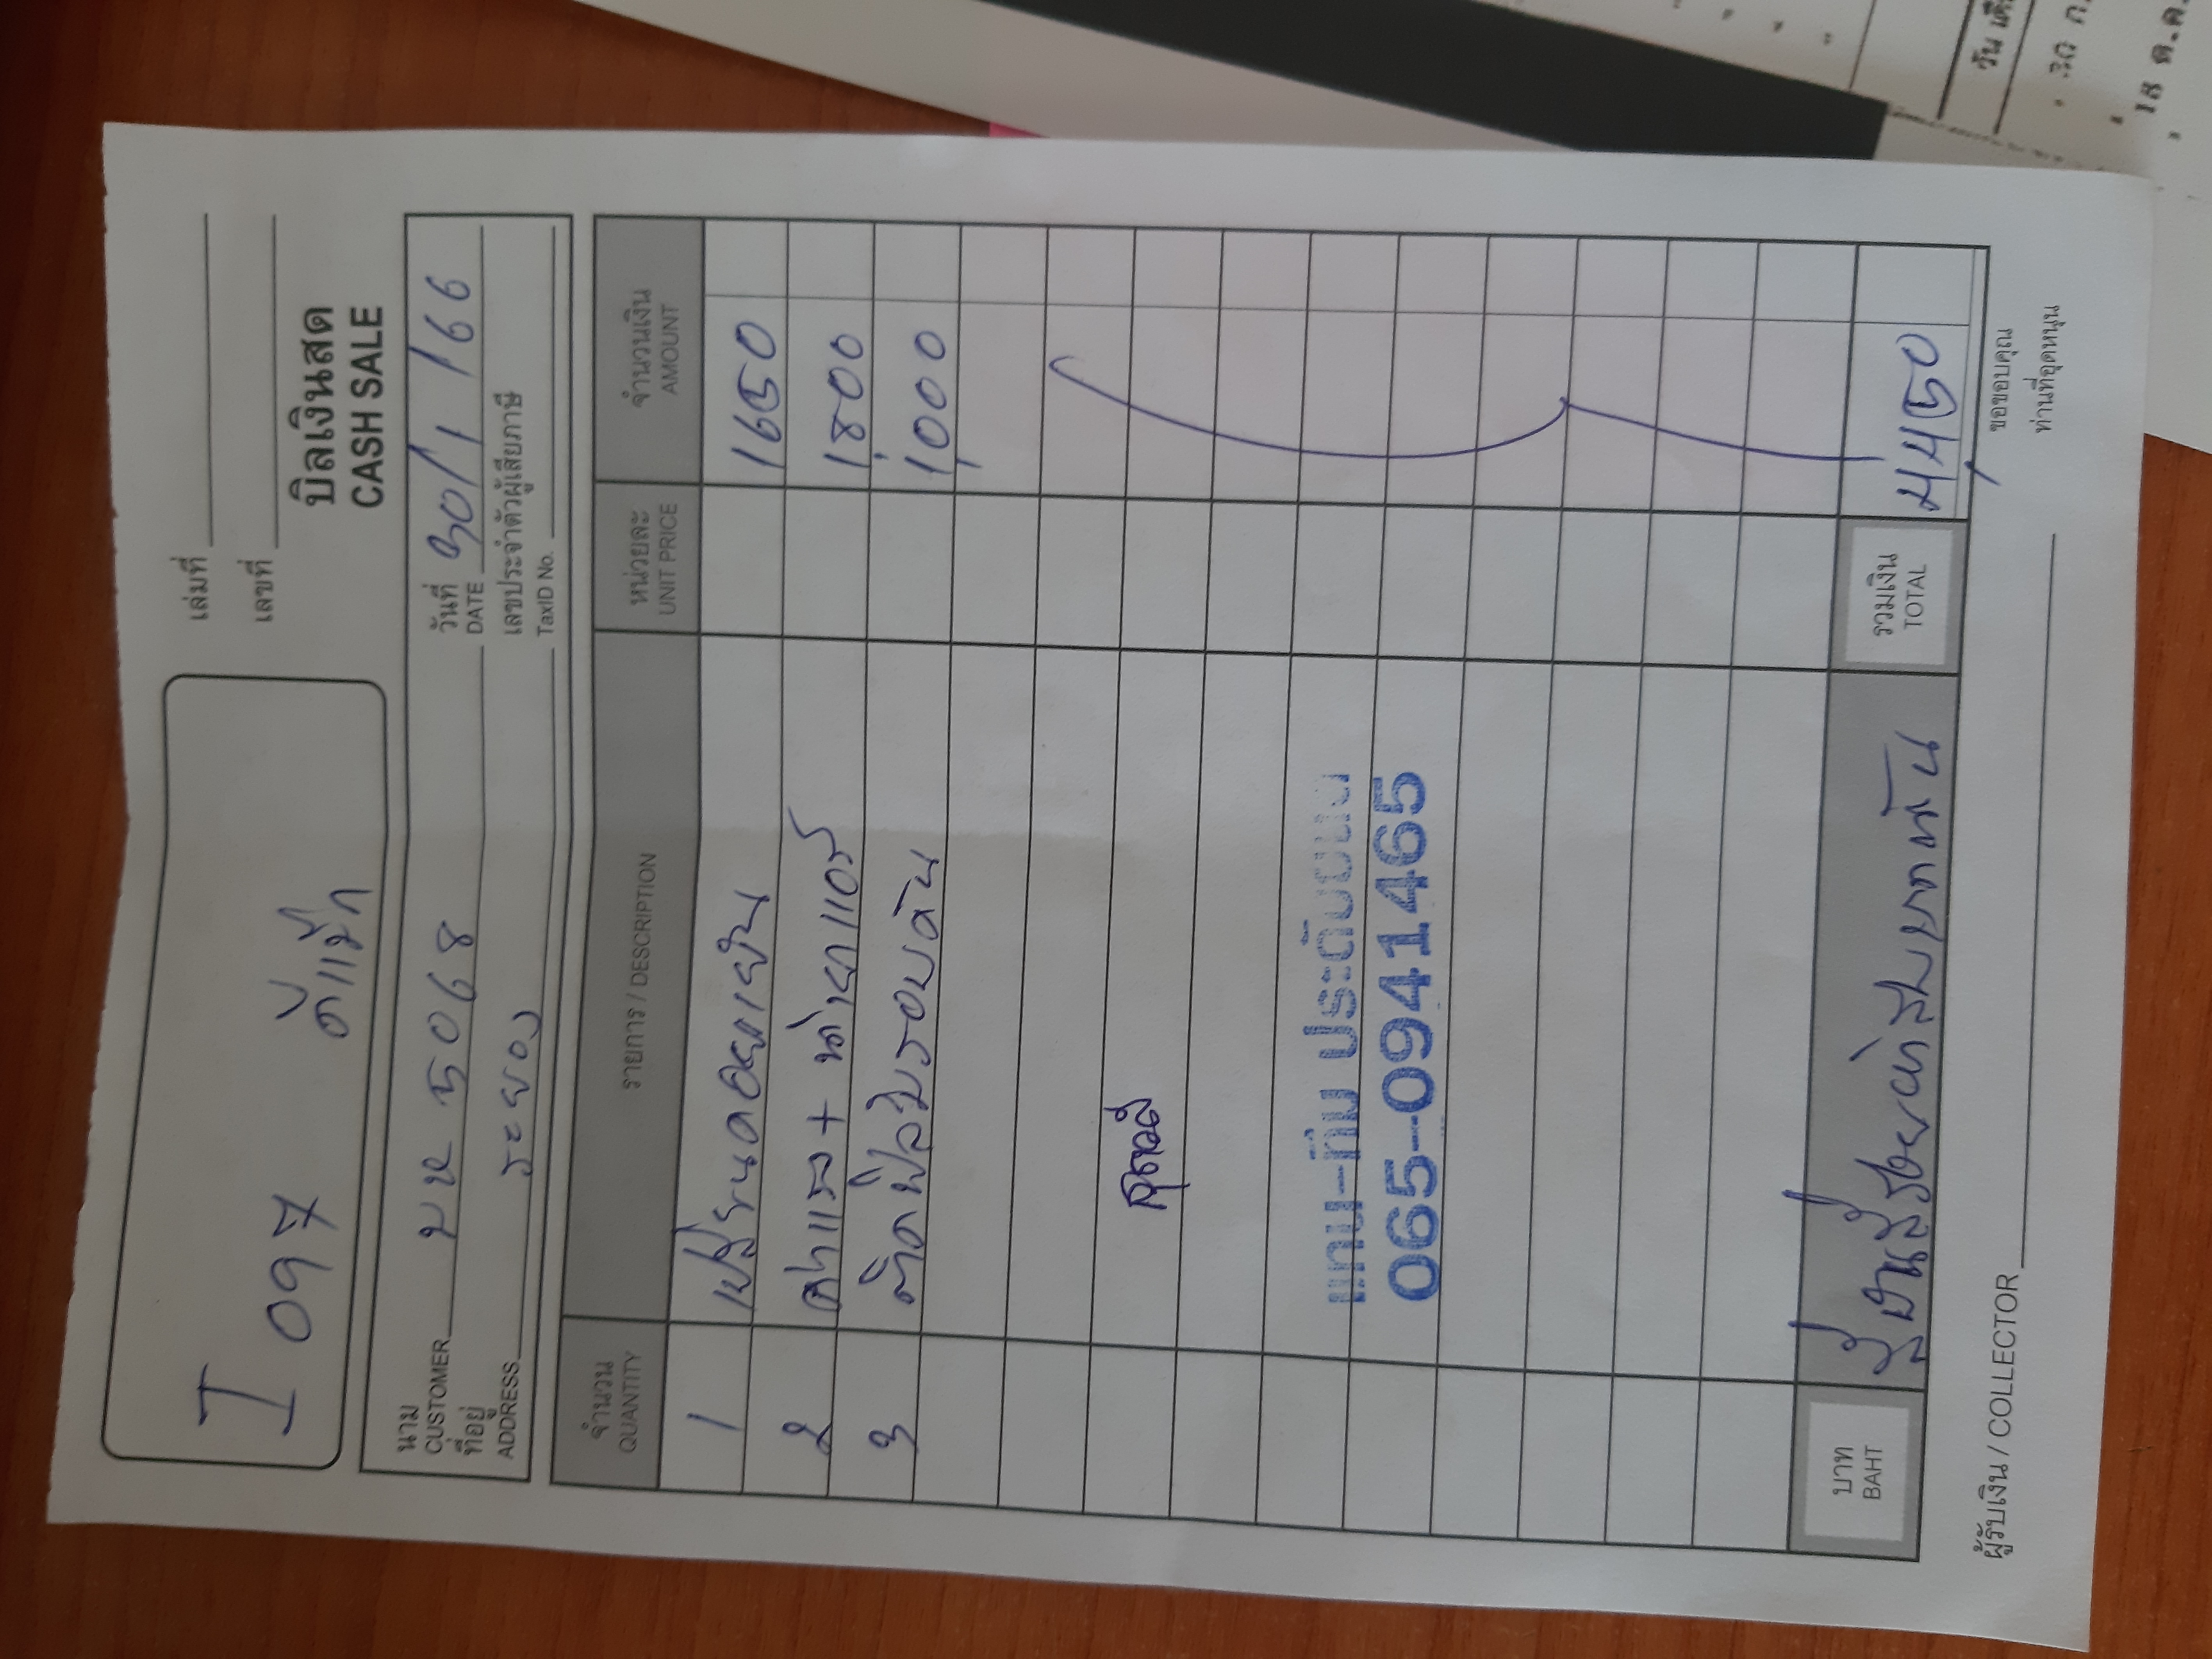 I 097 ดีแม๊ก
เล่มที่
เลขที่
บิลเงินสด
CASH SALE
นาม
CUSTOMER บห 5068
วันที่
DATE 30/1/66
ที่อยู่
ADDRESS ระยอง
เลขประจำตัวผู้เสียภาษี
TaxID No.
จำนวน
QUANTITY
รายการ / DESCRIPTION
หน่วยละ
UNIT PRICE
จำนวนเงิน
AMOUNT
1 เปลี่ยนคอยเย็น 1650
2 ค่าแรง + น้ำยาแอร์ 1,800
3 ติดฟิล์มรอบคัน 1,000
แทน-ทิม ประดับยนต์
065-0941465
บาท
BAHT
สี่พันสี่ร้อยห้าสิบบาทถ้วน
รวมเงิน
TOTAL
4,450
ผู้รับเงิน / COLLECTOR
ขอขอบคุณ
ท่านที่อุดหนุน
วัน เดื
30 ก.
18 ต.ค.